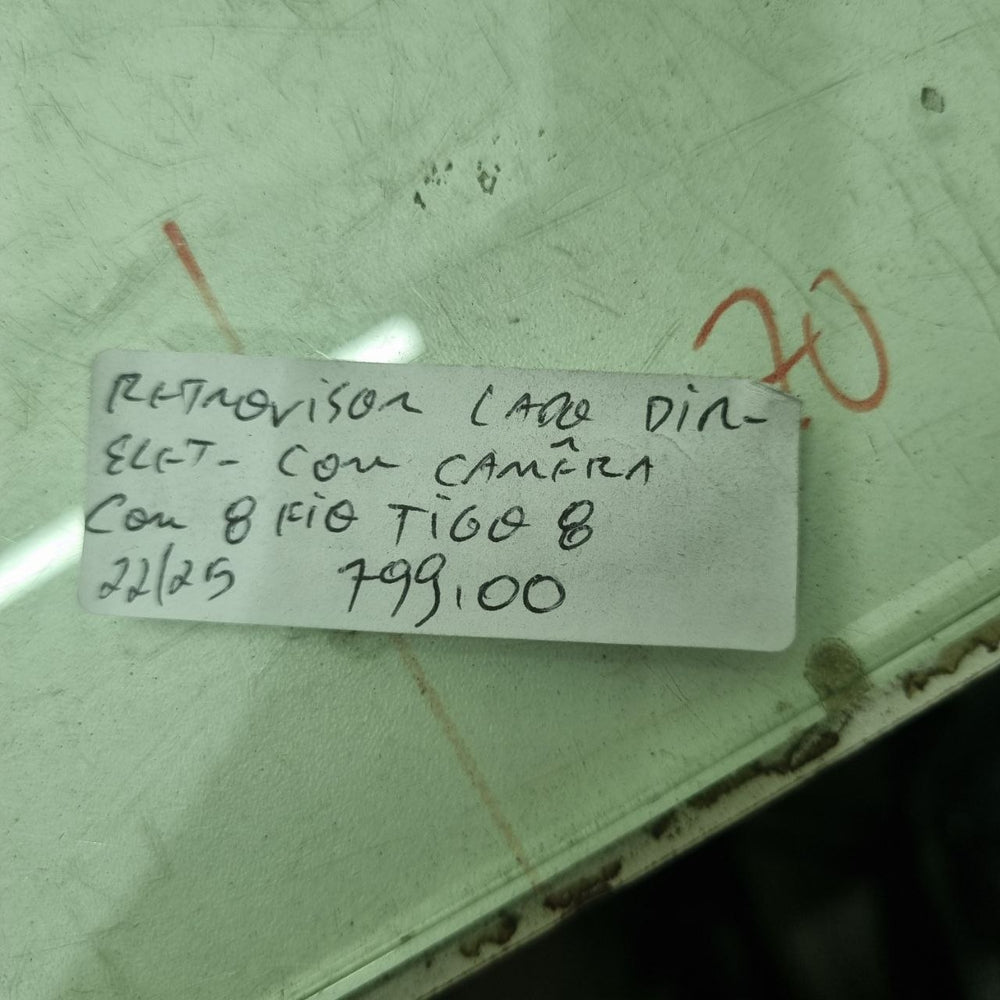 70
RETROVISOR LADO DIR-
ELET- COM CAMÊRA
COM 8 FIO TIGO 8
22/25 799,00